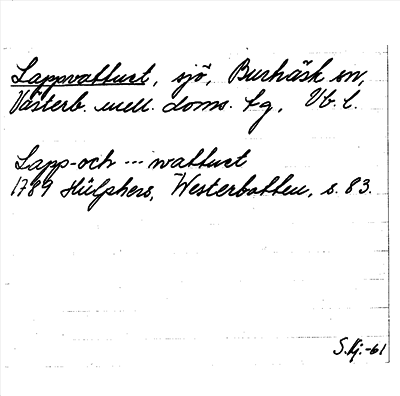 Lappvattnet, sjö, Burträsk sn,
Västerb. mell. doms. tg, Vb. l.
Lapp-och --- wattnet
1789 Hülphers, Westerbotten, s. 83.
S.Kj.-61